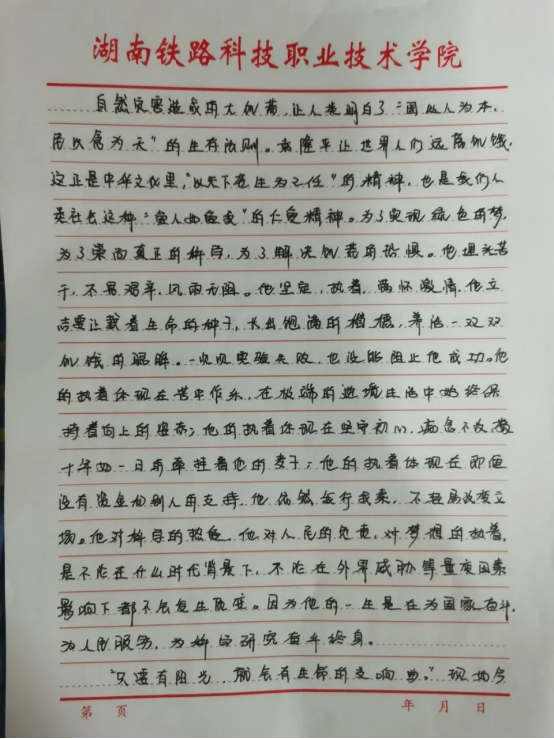 湖南铁路科技职业技术学院
自然灾害造成的大饥荒,让人类明白了“国以人为本,
民以食为天”的生存法则。袁隆平让世界人们远离饥饿,
这正是中华文化里,“以天下苍生为己任”的精神,也是我们人
类社会这种“爱人如爱我”的仁爱精神。为了实现绿色的梦,
为了探索真正的科学,为了解决饥荒的恐惧。他埋头苦
干,不畏艰辛,风雨无阻。他坚定,执着,满怀激情,他立
志要让载着生命的种子,长出饱满的稻穗,养活一双双
饥饿的眼眸。一次次实验失败,也没能阻止他成功。他
的执着体现在苦中作乐,在极端的逆境生活中始终保
持着向上的姿态;他的执着体现在坚守初心,病危不放弃
十年如一日的牵挂着他的麦子;他的执着体现在即便
没有资金和别人的支持,他依然践行探索,不轻易改变立
场。他对科学的热爱,他对人民的负责,对梦想的执着,
是不论在什么时代背景下,不论在外界威胁等重度因素
影响下都不会发生改变。因为他的一生是在为国家奋斗,
为人民服务,为科学研究奋斗终身。
“只要有阳光,就会有生命的交响曲。”现如今
第 页 年 月 日